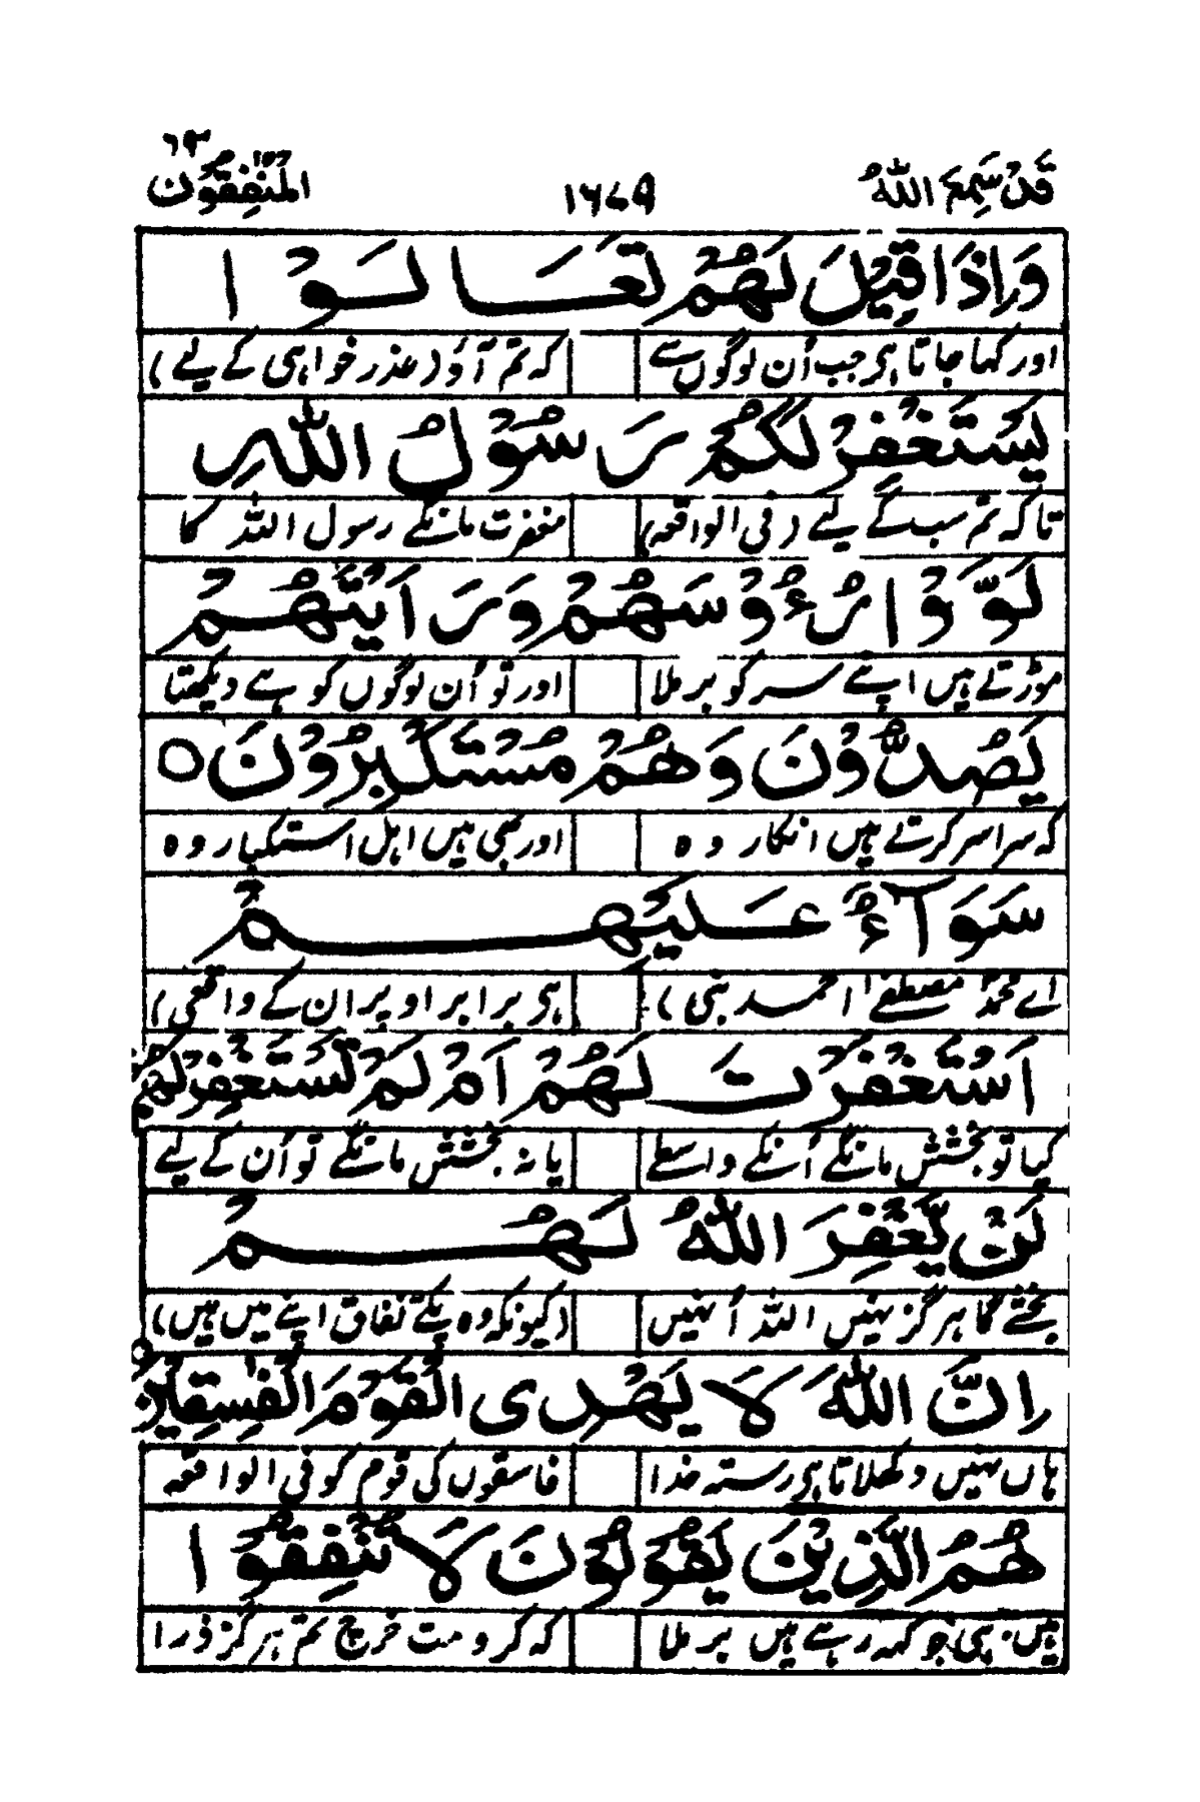 قَدْ سَمِعَ اللّٰهُ ١٦٧٩ الْمُنٰفِقُوْن ٦٣
وَاِذَا قِيْلَ لَهُمْ تَعَالَوْا
اور کہا جاتا ہی جب اُن لوگوں سے کہ تم آؤ (عذر خواہی کے لیے)
يَسْتَغْفِرْ لَكُمْ رَسُوْلُ اللّٰهِ
تاکہ تم سب کے لیے (فی الواقعہ) مغفرت مانگے رسول اللہ کا
لَوَّوْا رُءُوْسَهُمْ وَرَاَيْتَهُمْ
موڑتے ہیں اپنے سر کو بر ملا اور تو اُن لوگوں کو ہے دیکھتا
يَصُدُّوْنَ وَهُمْ مُّسْتَكْبِرُوْنَ ○
کہ سراسر کرتے ہیں انکار وہ اور بھی ہیں اہل استکبار وہ
سَوَآءٌ عَلَيْهِمْ
اے محمدؐ مصطفےٰ احمد نبی) ہی برابر اوپر ان کے واقعی)
اَسْتَغْفَرْتَ لَهُمْ اَمْ لَمْ تَسْتَغْفِرْ لَهُمْ
کیا تو بخشش مانگے اُنکے واسطے یا نہ بخشش مانگے تو اُن کے لیے
لَنْ يَّغْفِرَ اللّٰهُ لَهُمْ
بخشے گا ہر گز نہیں اللہ اُنہیں (کیونکہ وہ پکے نفاق اپنے میں ہیں)
اِنَّ اللّٰهَ لَا يَهْدِى الْقَوْمَ الْفٰسِقِيْنَ ○
ہاں نہیں دکھلاتا ہی رستہ خدا فاسقوں کی قوم کو فی الواقعہ
هُمُ الَّذِيْنَ يَقُوْلُوْنَ لَا تُنْفِقُوْا
ہیں یہی جو کہہ رہے ہیں بر ملا کہ کرو مت خرچ تم ہرگز ذرا